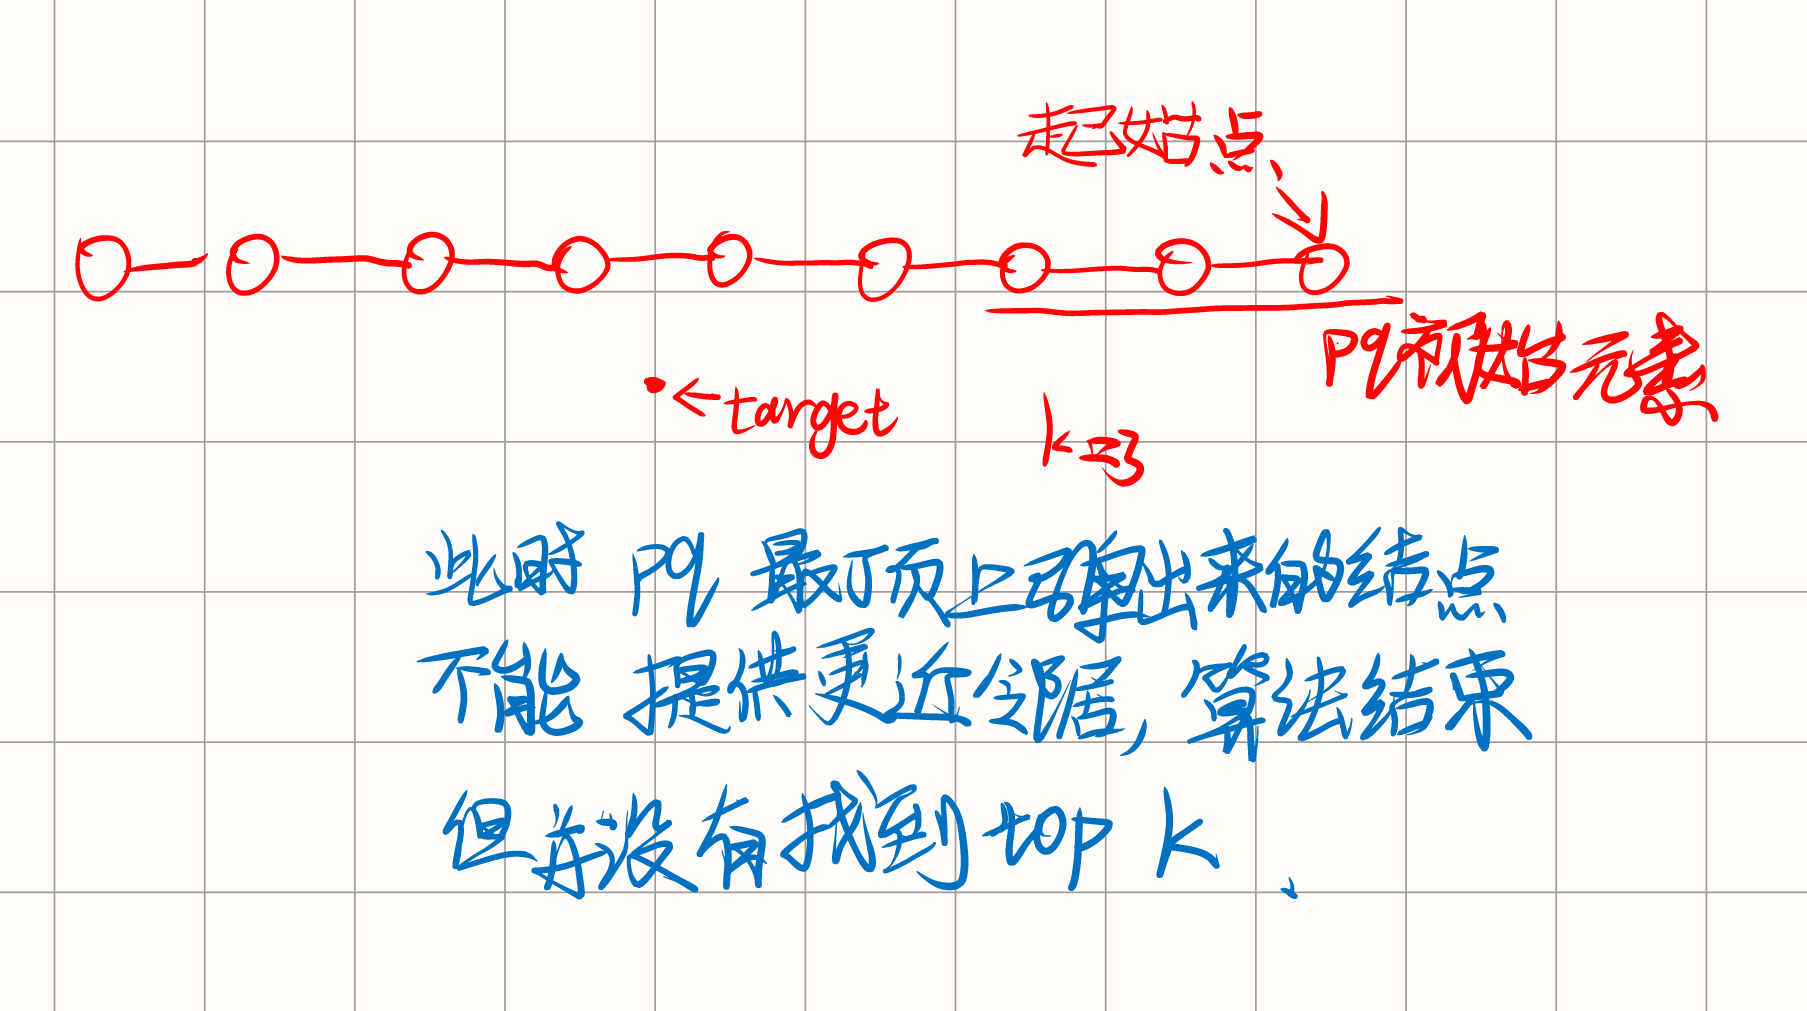 起始点
pq初始元素
target
k=3
此时 pq 最顶上弹出来的结点
不能 提供更近邻居, 算法结束
但并没有找到 top k 、